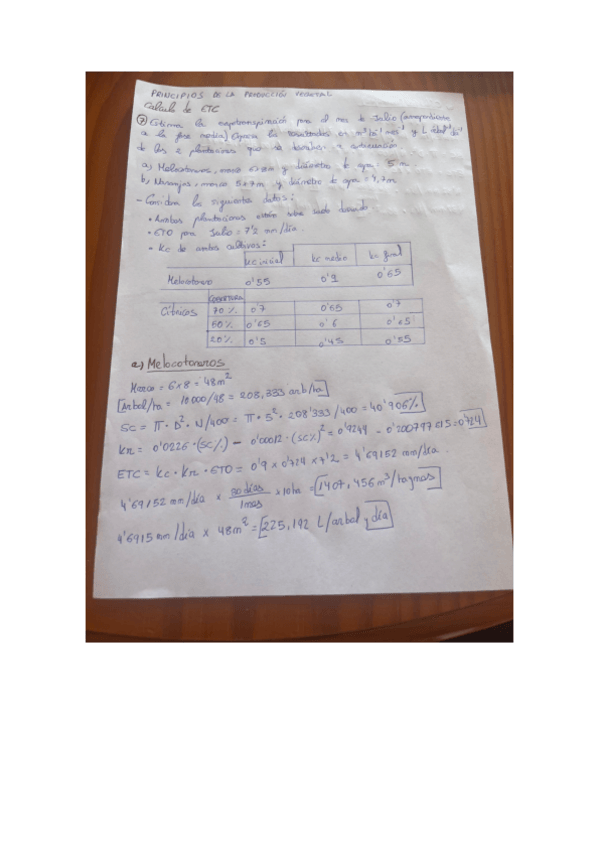 PRINCIPIOS DE LA PRODUCCIÓN VEGETAL
Calculo de ETC
7 Estima la evapotranspiración para el mes de Julio (correspondiente
a la fase media). Expresa los resultados en m³ ha⁻¹ mes⁻¹ y L árbol⁻¹ día⁻¹
de las 2 plantaciones que se describen a continuación
a) Melocotoneros, marco 6x8m y diámetro de copa: 5 m
b) Naranjos, marco 5x7m y diámetro de copa = 4,7m
- Considera los siguientes datos:
• Ambas plantaciones están sobre suelo
• ETO para Julio = 7'2 mm/día.
• Kc de ambos cultivos:
kc inicial kc medio kc final
Melocotonero 0'55 0'9 0'65
Cítricos COBERTURA
70 % 0'7 0'65 0'7
50% 0'65 0'6 0'65
20% 0'5 0'45 0'55
a) Melocotoneros
Marco = 6x8 = 48m²
Árbol/ha = 10000/48 = 208,333 arb/ha
SC = π · D² · N/400 = π · 5² · 208'333/400 = 40'906%
Kr = 0'0226 · (SC%) - 0'00012 · (SC%)² = 0'9249 - 0'200797515 = 0'724
ETC = kc · Kr · ETO = 0'9 x 0'724 x 7'2 = 4'69152 mm/día.
4'69152 mm/día x 30 días/1 mes x 10 = 1407,456 m³/ha y mes
4'6915 mm/día x 48m² = 225,192 L/arbol y día